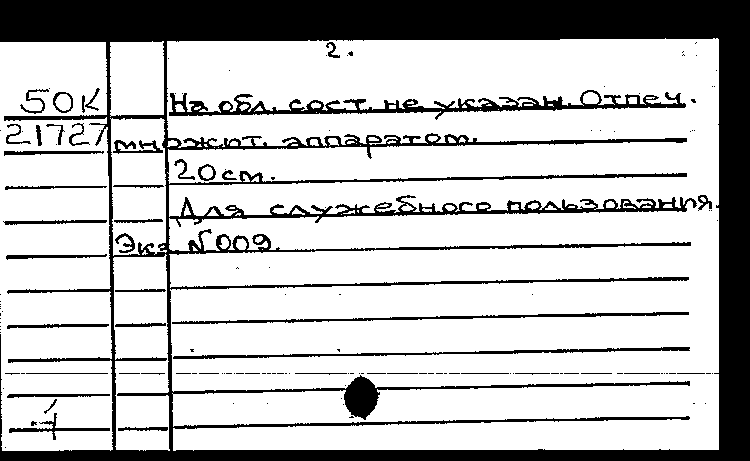 2.
50К На обл. сост. не указан. Отпеч.
21727 множит. аппаратом.
20см.
Для служебного пользования.
Экз. №009.